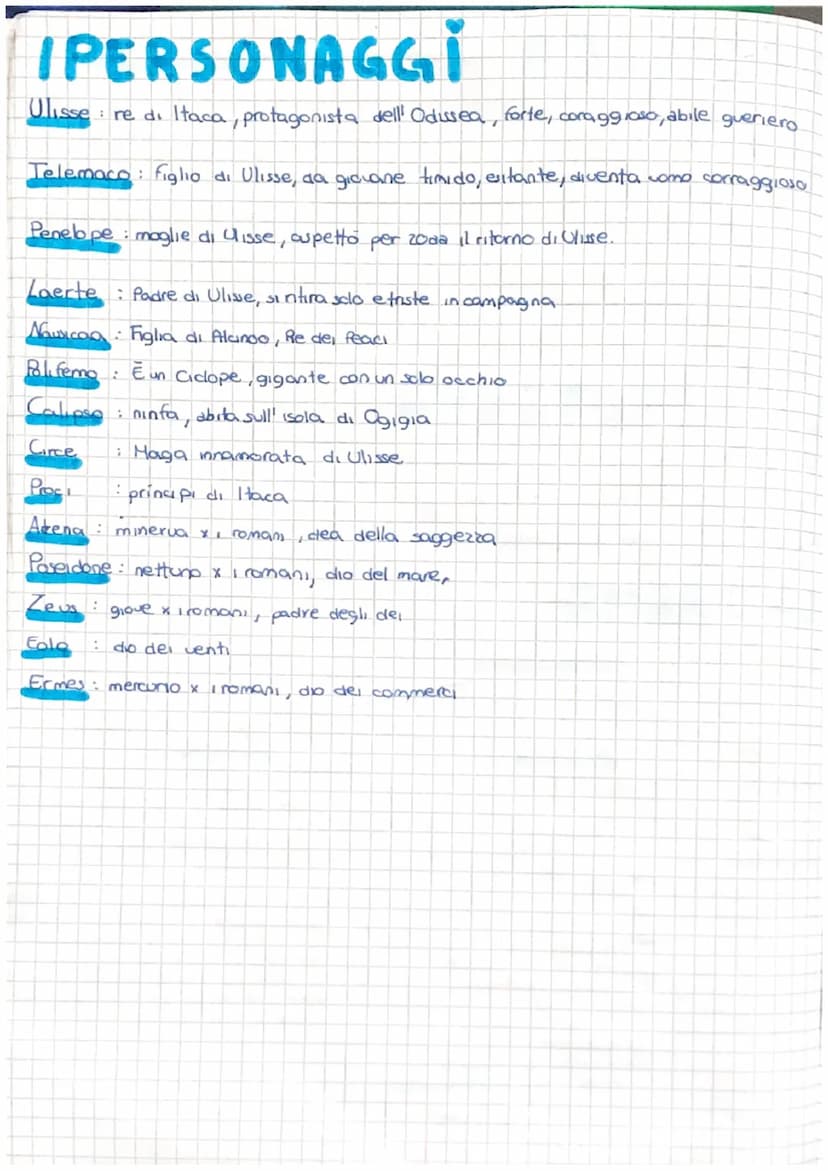 I PERSONAGGI
Ulisse : re di Itaca, protagonista dell' Odissea, forte, coraggioso, abile guerriero
Telemaco : figlio di Ulisse, da giovane timido, esitante, diventa uomo corraggioso
Penelope : moglie di Ulisse, aspettò per 20aa il ritorno di Ulisse.
Laerte : Padre di Ulisse, si ritira solo e triste in campagna
Nausicaa : Figlia di Alcinoo, Re dei Feaci
Polifemo : È un Ciclope, gigante con un solo occhio
Calipso : ninfa, abita sull' isola di Ogigia
Circe : Maga innamorata di Ulisse
Proci : principi di Itaca
Atena : minerva x i romani, dea della saggezza
Poseidone : nettuno x i romani, dio del mare,
Zeus : giove x i romani, padre degli dei
Eolo : dio dei venti
Ermes : mercurio x i romani, dio dei commerci